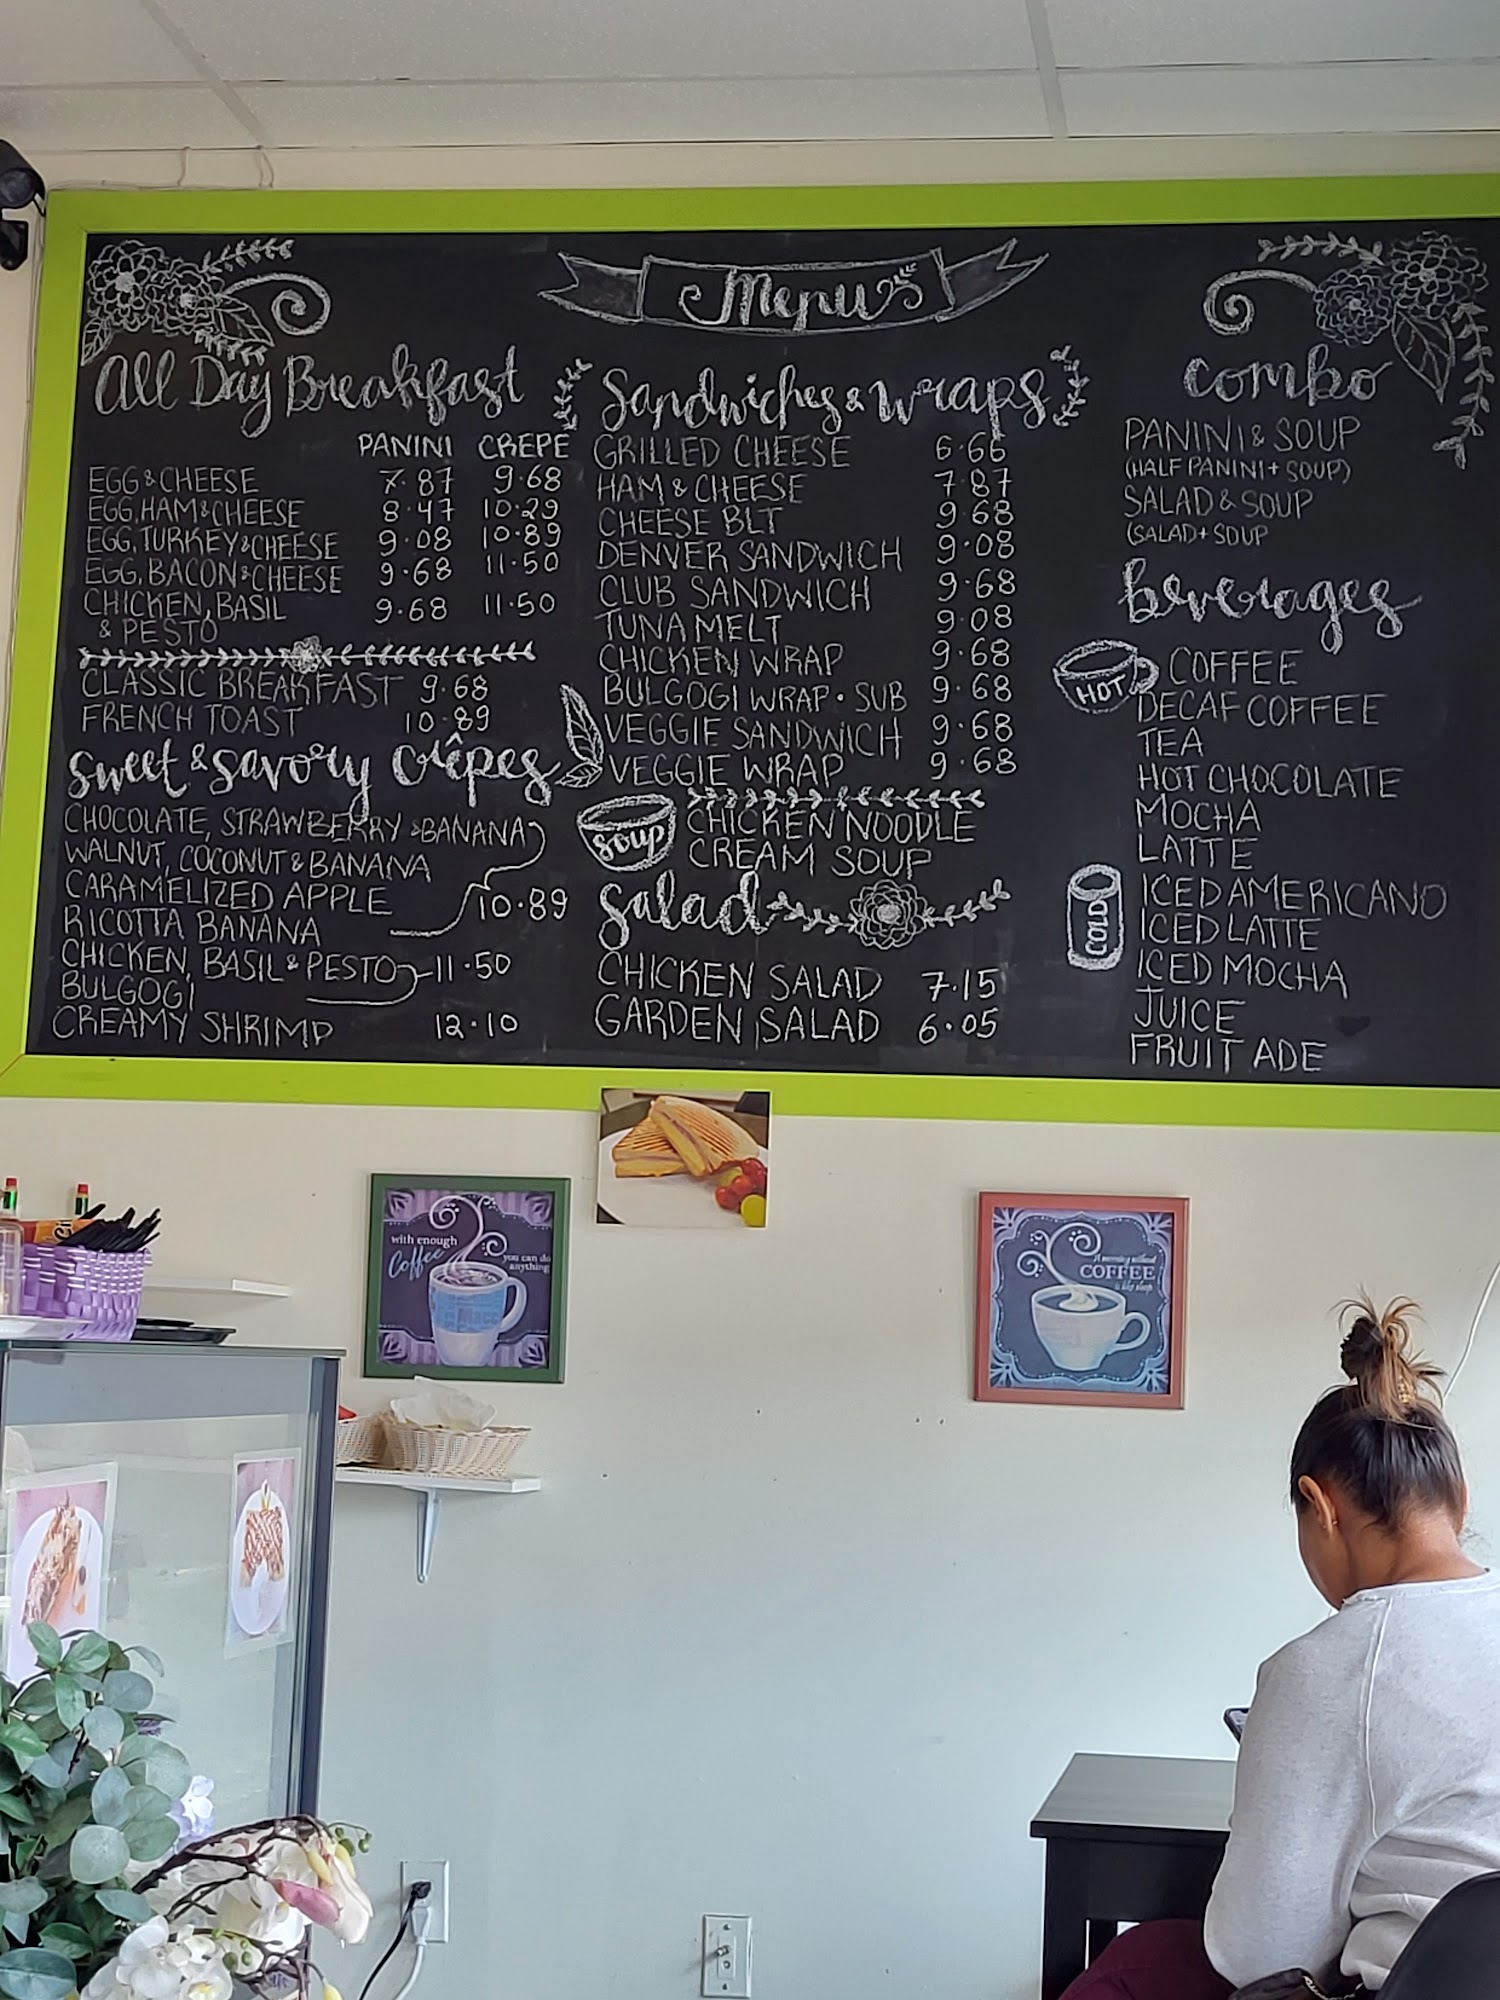 Menus
All Day Breakfast
PANINI CREPE
EGG & CHEESE 7.87 9.68
EGG, HAM & CHEESE 8.47 10.29
EGG, TURKEY & CHEESE 9.08 10.89
EGG, BACON & CHEESE 9.68 11.50
CHICKEN, BASIL 9.68 11.50
& PESTO
CLASSIC BREAKFAST 9.68
FRENCH TOAST 10.89
Sweet & Savory Crêpes
CHOCOLATE, STRAWBERRY & BANANA
WALNUT, COCONUT & BANANA
CARAMELIZED APPLE 10.89
RICOTTA BANANA
CHICKEN, BASIL & PESTO 11.50
BULGOGI
CREAMY SHRIMP 12.10
Sandwiches & Wraps
GRILLED CHEESE 6.66
HAM & CHEESE 7.87
CHEESE BLT 9.68
DENVER SANDWICH 9.08
CLUB SANDWICH 9.68
TUNA MELT 9.08
CHICKEN WRAP 9.68
BULGOGI WRAP • SUB 9.68
VEGGIE SANDWICH 9.68
VEGGIE WRAP 9.68
Soup
CHICKEN NOODLE
CREAM SOUP
Salad
CHICKEN SALAD 7.15
GARDEN SALAD 6.05
combo
PANINI & SOUP
(HALF PANINI + SOUP)
SALAD & SOUP
(SALAD + SOUP
beverages
HOT
COFFEE
DECAF COFFEE
TEA
HOT CHOCOLATE
MOCHA
LATTE
COLD
ICED AMERICANO
ICED LATTE
ICED MOCHA
JUICE
FRUIT ADE
with enough
Coffee
you can do
anything
A morning without
COFFEE
is like sleep